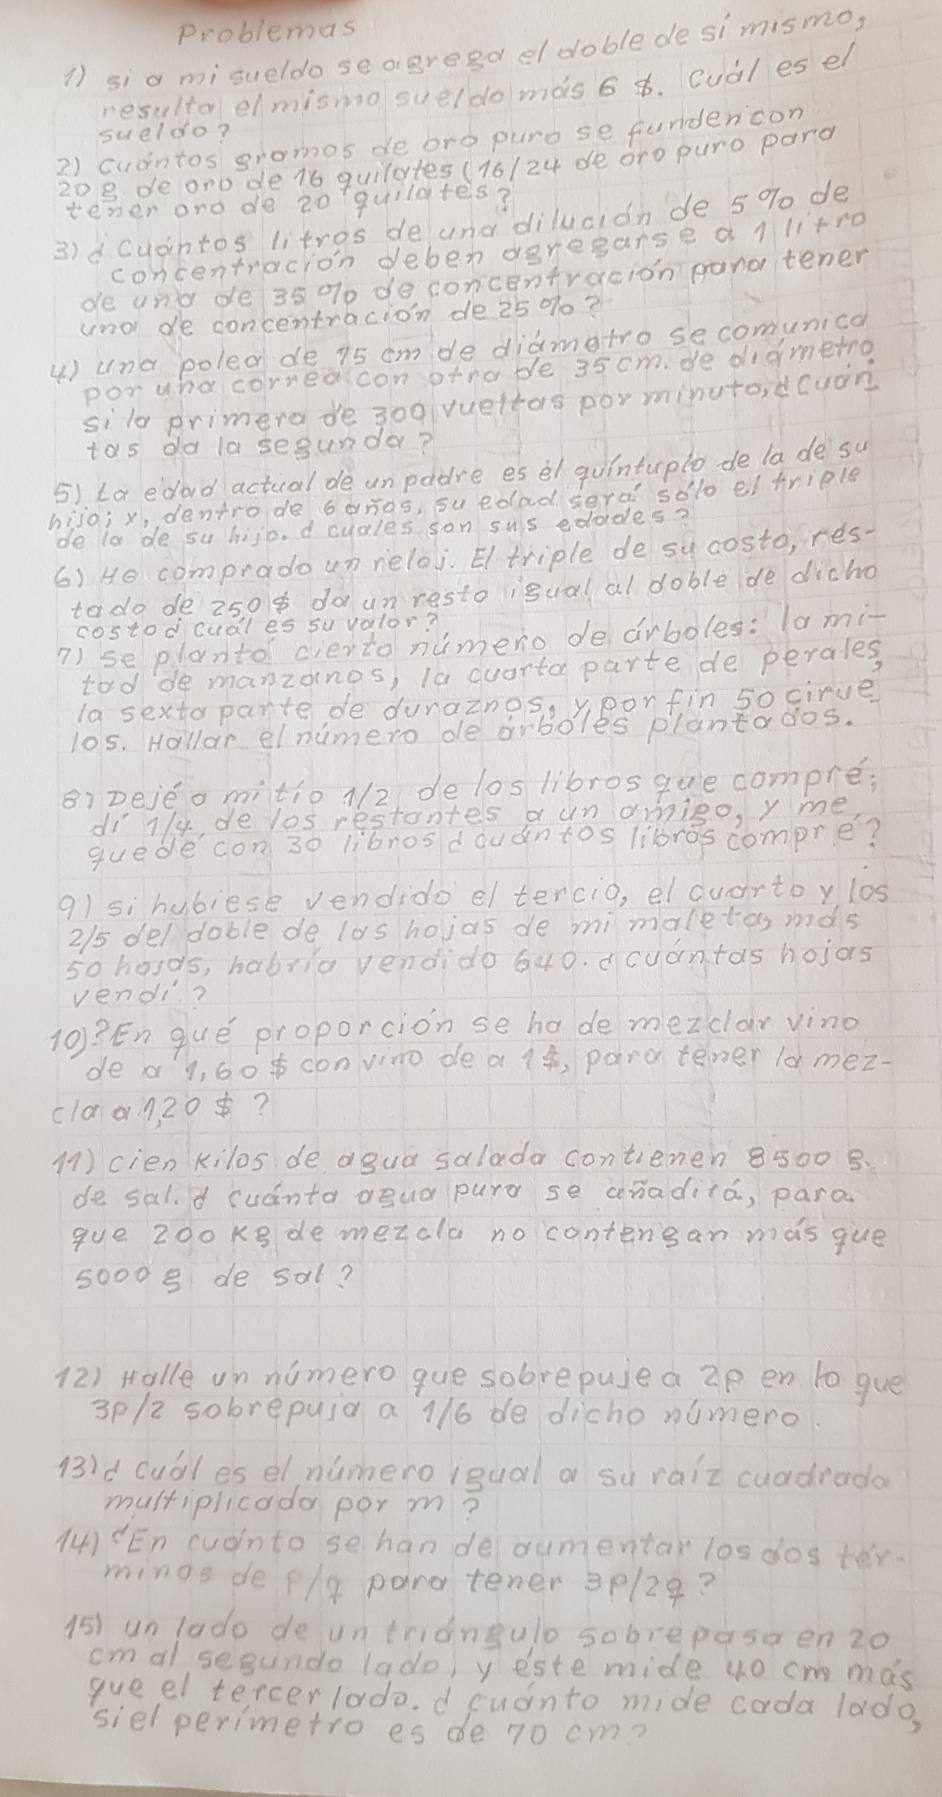 Problemas
1) si a mi sueldo se agrega el doble de sí mismo,
resulta el mismo sueldo más 6 $. Cuál es el
sueldo?
2) cuántos gramos de oro puro se funden con
20 g. de oro de 16 quilates (16/24 de oro puro para
tener oro de 20 quilates?
3) ¿cuántos litros de una dilución de 5% de
concentración deben agregarse a 1 litro
de una de 35% de concentración para tener
una de concentración de 25%?
4) una polea de 75 cm de diámatro se comunica
por una correa con otra de 35 cm. de diámetro
si la primera de 300 vueltas por minuto, ¿cuán
tas da la segunda?
5) La edad actual de un padre es el quíntuplo de la de su
hijo; y, dentro de 6 años, su edad será sólo el triple
de la de su hijo. ¿cuales son sus edades?
6) He comprado un reloj. El triple de su costo, res-
tado de 250$ da un resto igual al doble de dicho
costo ¿cuál es su valor?
7) se plantó cierto número de árboles: la mi-
tad de manzanos, la cuarta parte de perales,
la sexta parte de duraznos, y por fin 50 cirue
los. Hallar el número de árboles plantados.
8) Dejé a mi tío 1/2 de los libros que compré;
di 1/4, de los restantes a un amigo, y me
quedé con 30 libros ¿cuántos libros compré?
9) si hubiese vendido el tercio, el cuarto y los
2/5 del doble de las hojas de mi maleta, más
50 hojas, habría vendido 640. ¿cuántas hojas
vendí?
10)?En qué proporción se ha de mezclar vino
de a 1,60$ con vino de a 1$, para tener la mez-
cla a 1,20 $ ?
11) cien kilos de agua salada contienen 8500 g.
de sal. ¿cuánta agua pura se añadirá, para
que 200 kg de mezcla no contengan más que
5000 g de sal?
12) Halle un número que sobrepuje a 2p en lo que
3p/2 sobrepuja a 1/6 de dicho número.
13) ¿cuál es el número igual a su raíz cuadrada
multiplicada por m?
14) ¿En cuánto se han de aumentar los dos tér-
minos de p/q para tener 3p/2q?
15) un lado de un triángulo sobrepasa en 20
cm al segundo lado, y éste mide 40 cm más
que el tercer lado. ¿cuánto mide cada lado,
si el perímetro es de 70 cm?